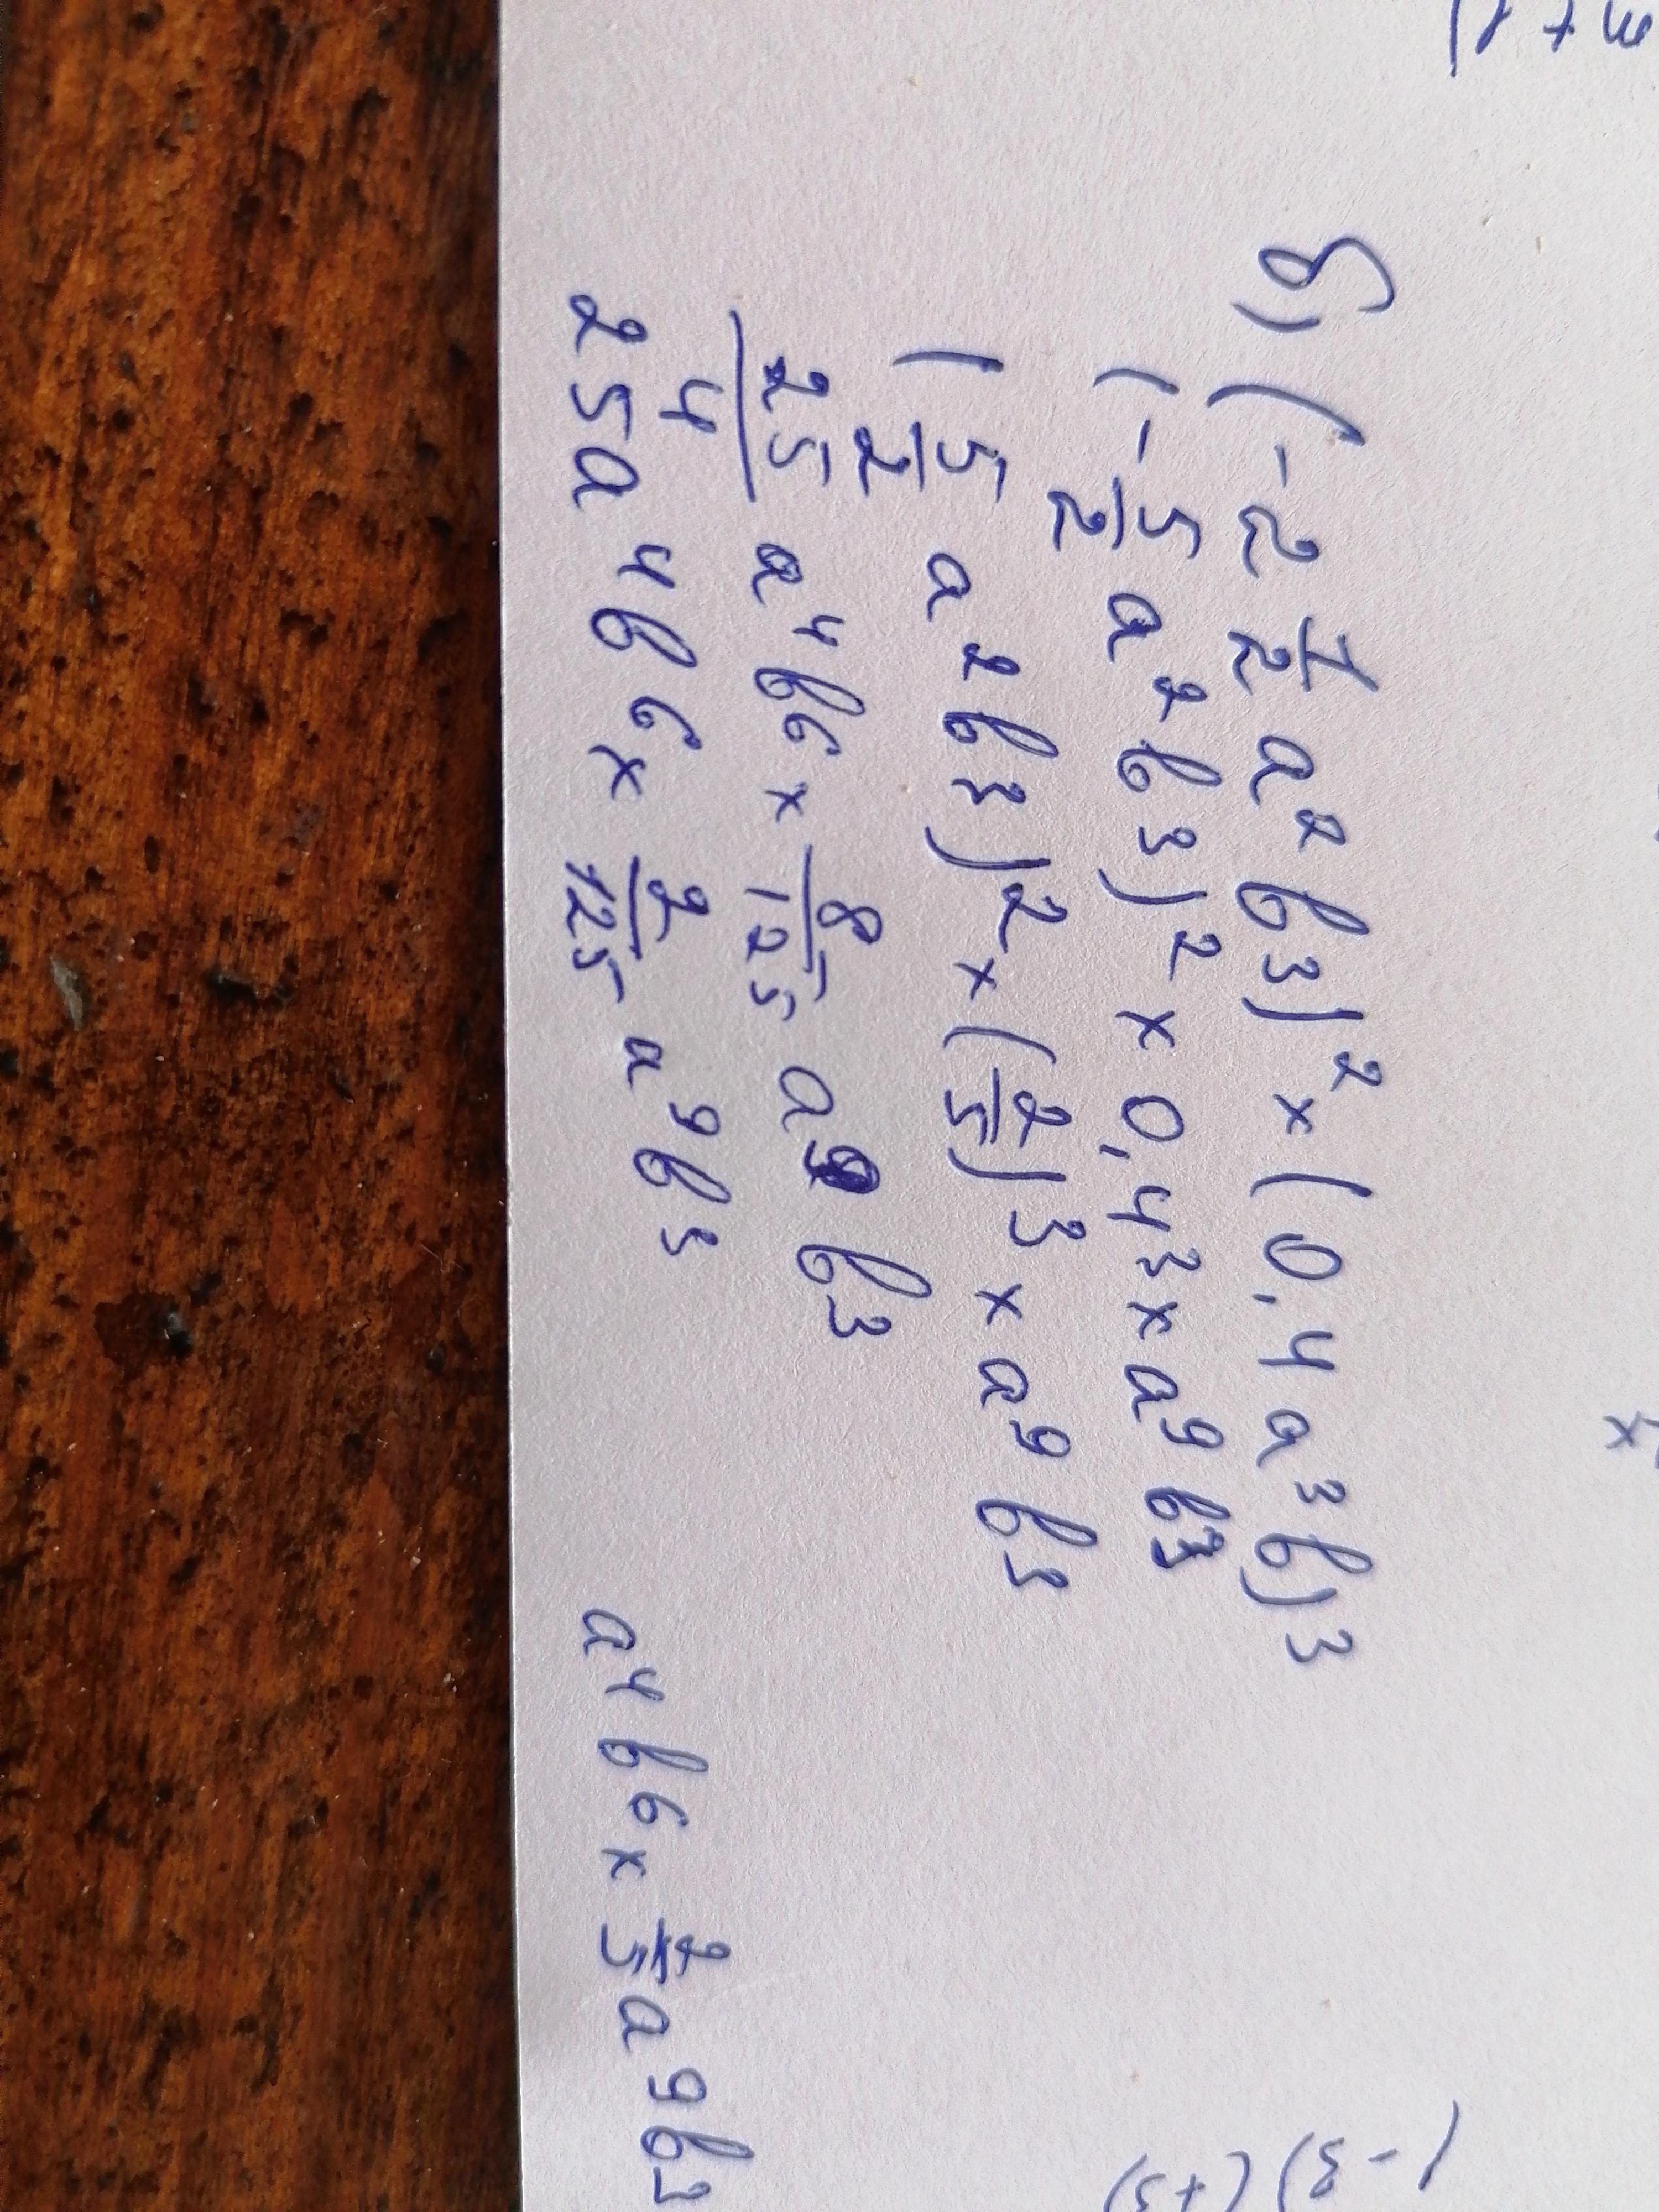 m+1)
б) (-2 1/2 a² b³)² × (0,4 a³ b)³
(-5/2 a² b³)² × 0,4³ × a⁹ b³
(5/2 a² b³)² × (2/5)³ × a⁹ b³
25/4 a⁴ b⁶ × 8/125 a⁹ b³
25a⁴b⁶ × 2/125 a⁹b³
a⁴b⁶ × 2/5 a⁹b³